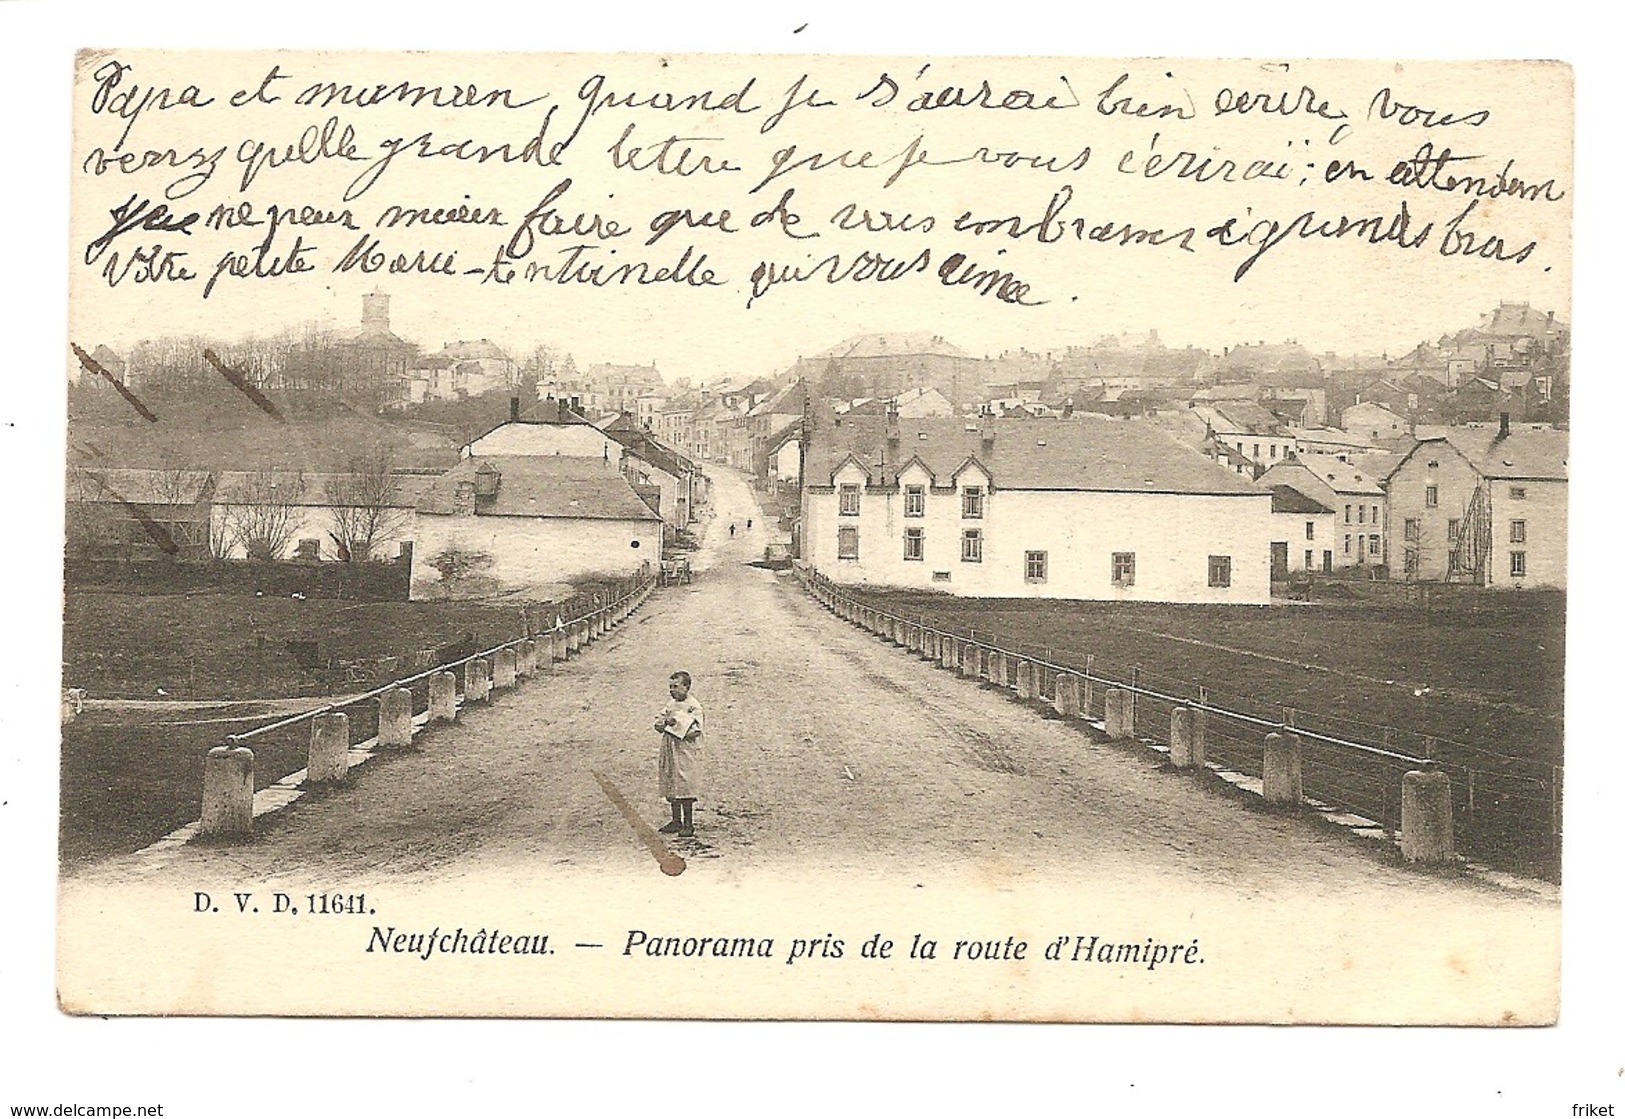 Papa et maman, quand je s'aurai bien écrire, vous
verrez quellle grande letere que je vous écrirai; en attendan
je ne peux mieux faire que de vous embrasser à grands bras.
Vôtre petite Marie-tentoinelle qui vous aime.
D. V. D. 11641.
Neufchâteau. — Panorama pris de la route d'Hamipré.
www.delcampe.net
friket